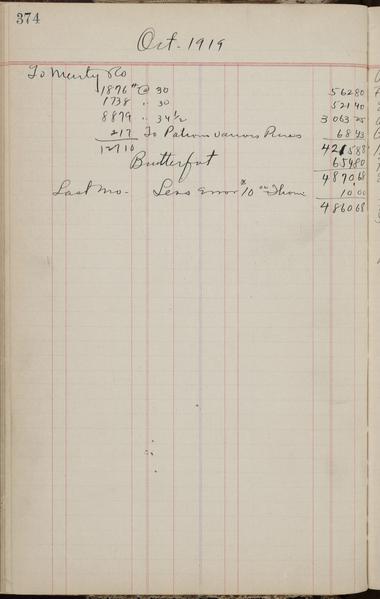 374
Oct. 1919
To Marty Co
1876 # @ 30 562 80
1738 " 30 521 40
8879 " 34 1/2 3 063 25
217 To Patrons various Prices 68 43
12710 4215 88
Butterfat 654 80
4 870 68
Last Mo. Less Error $10 on 10 00
4 860 68